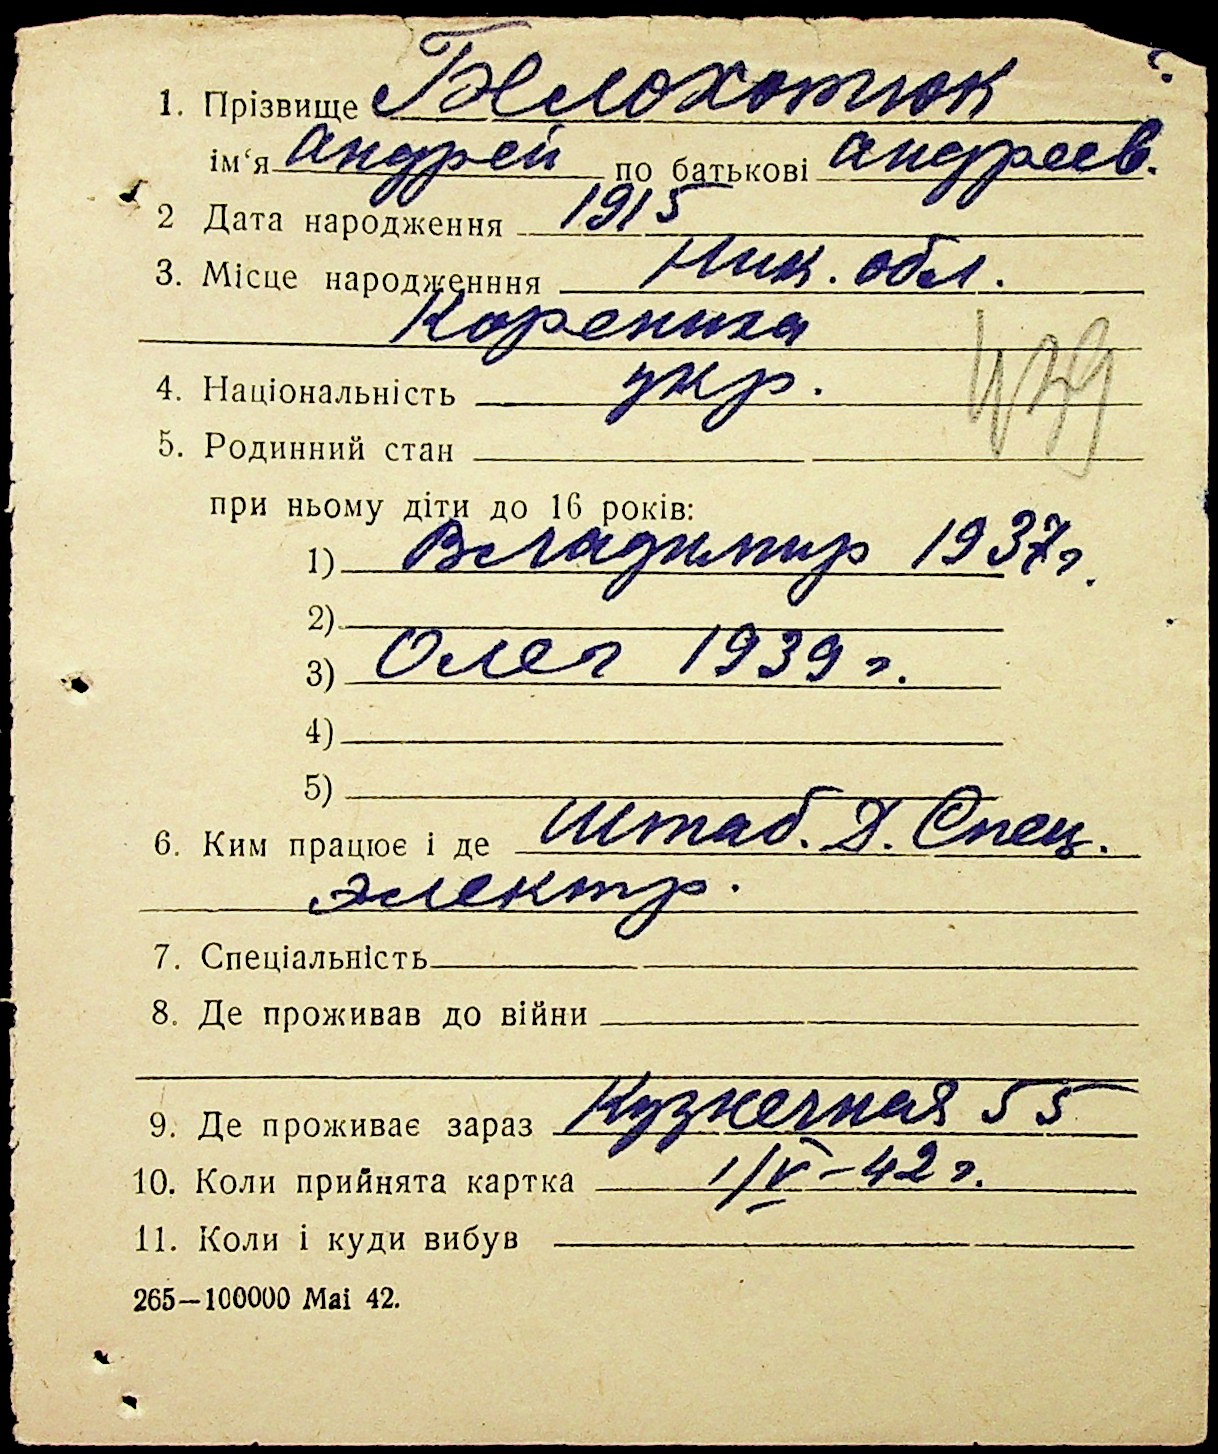 1. Прізвище Белохотюк
ім'я Андрей по батькові Андреев.
2 Дата народження 1915
3. Місце народженння Ник. обл.
Корениха
4. Національність укр.
439
5. Родинний стан
при ньому діти до 16 років:
1) Владимир 1937г.
2)
3) Олег 1939 г.
4)
5)
6. Ким працює і де Штаб. Д. Спец.
электр.
7. Спеціальність
8. Де проживав до війни
9. Де проживає зараз Кузнечная 55
10. Коли прийнята картка 1/V-42 г.
11. Коли і куди вибув
265—100000 Mai 42.